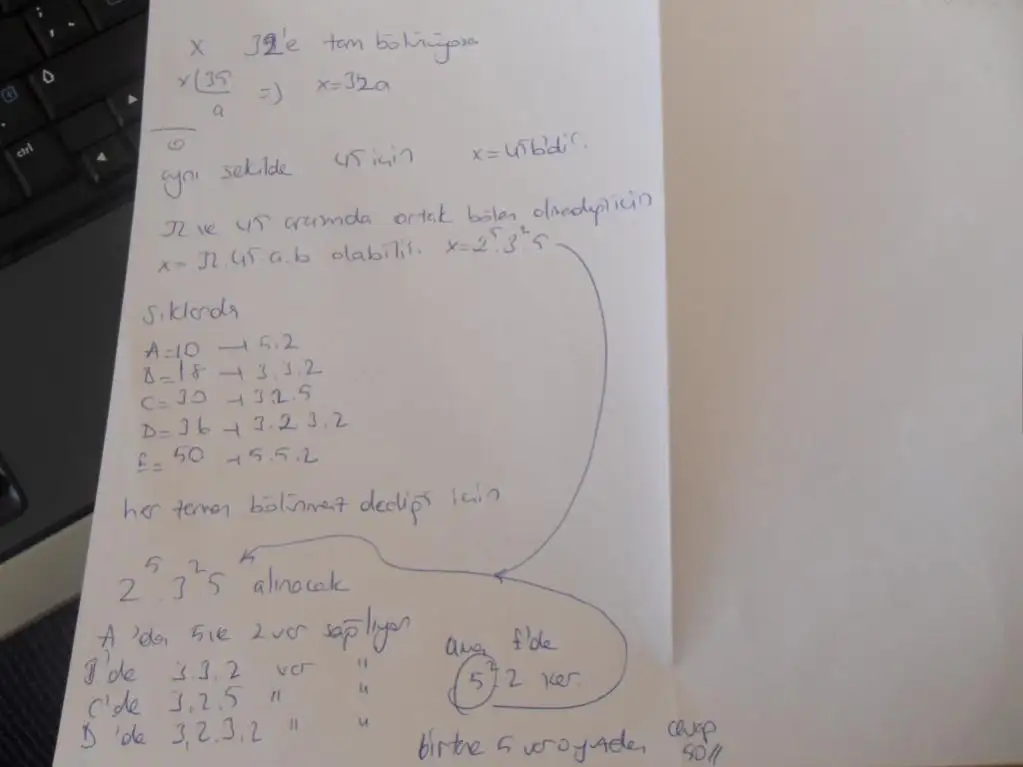 x 32'e tam bölünüyorsa
x (35
a => x=32a
0
aynı şekilde 45 için x=45b'dir.
32 ve 45 arasında ortak bölen olmadığı için
x= 32.45 a.b olabilir. x=2⁵.3².5
şıklarda
A=10 → 5.2
B=18 → 3.3.2
C=30 → 3.2.5
D=36 → 3.2.3.2
E=50 → 5.5.2
her zaman bölünmez dediği için
2⁵.3².5 alınacak
A'da 5 ve 2 var sağlıyor
B'de 3.3.2 var "
C'de 3.2.5 " "
D'de 3.2.3.2 " "
ama E'de
5².2 var.
birtane 5 var o yüzden cevap
50//